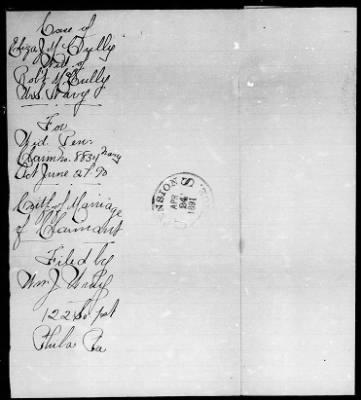 Case of
Eliza J McCully
Wid. of
Robt McCully
U.S. Navy
For
Wid. Pen.
Claim no. 8834 Navy
Act June 27. 90
Certf. of Marriage
of Claimant
Filed by
Wm. J.
122 So.
Phila Pa
PENSION
APR
1891